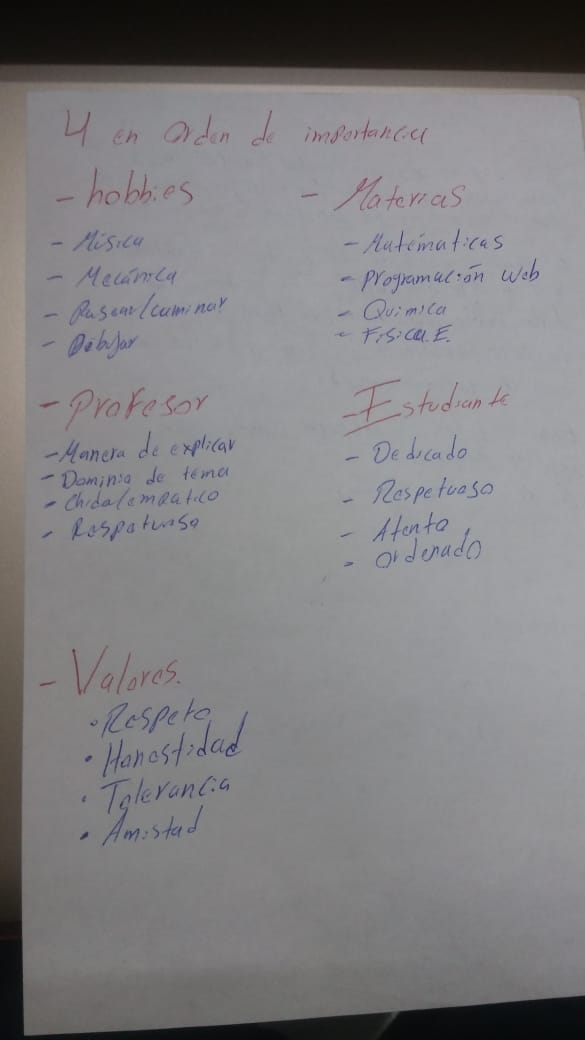 4 en orden de importancia
- hobbies
- Música
- Mecánica
- Pasear/caminar
- Dibujar
- Materias
- Matématicas
- Programación Web
- Química
- Física E.
- Profesor
- Manera de explicar
- Dominio de tema
- Chido/empático
- Respetuoso
- Estudiante
- Dedicado
- Respetuoso
- Atento
- Ordenado
- Valores.
• Respeto
• Honestidad
• Tolerancia
• Amistad